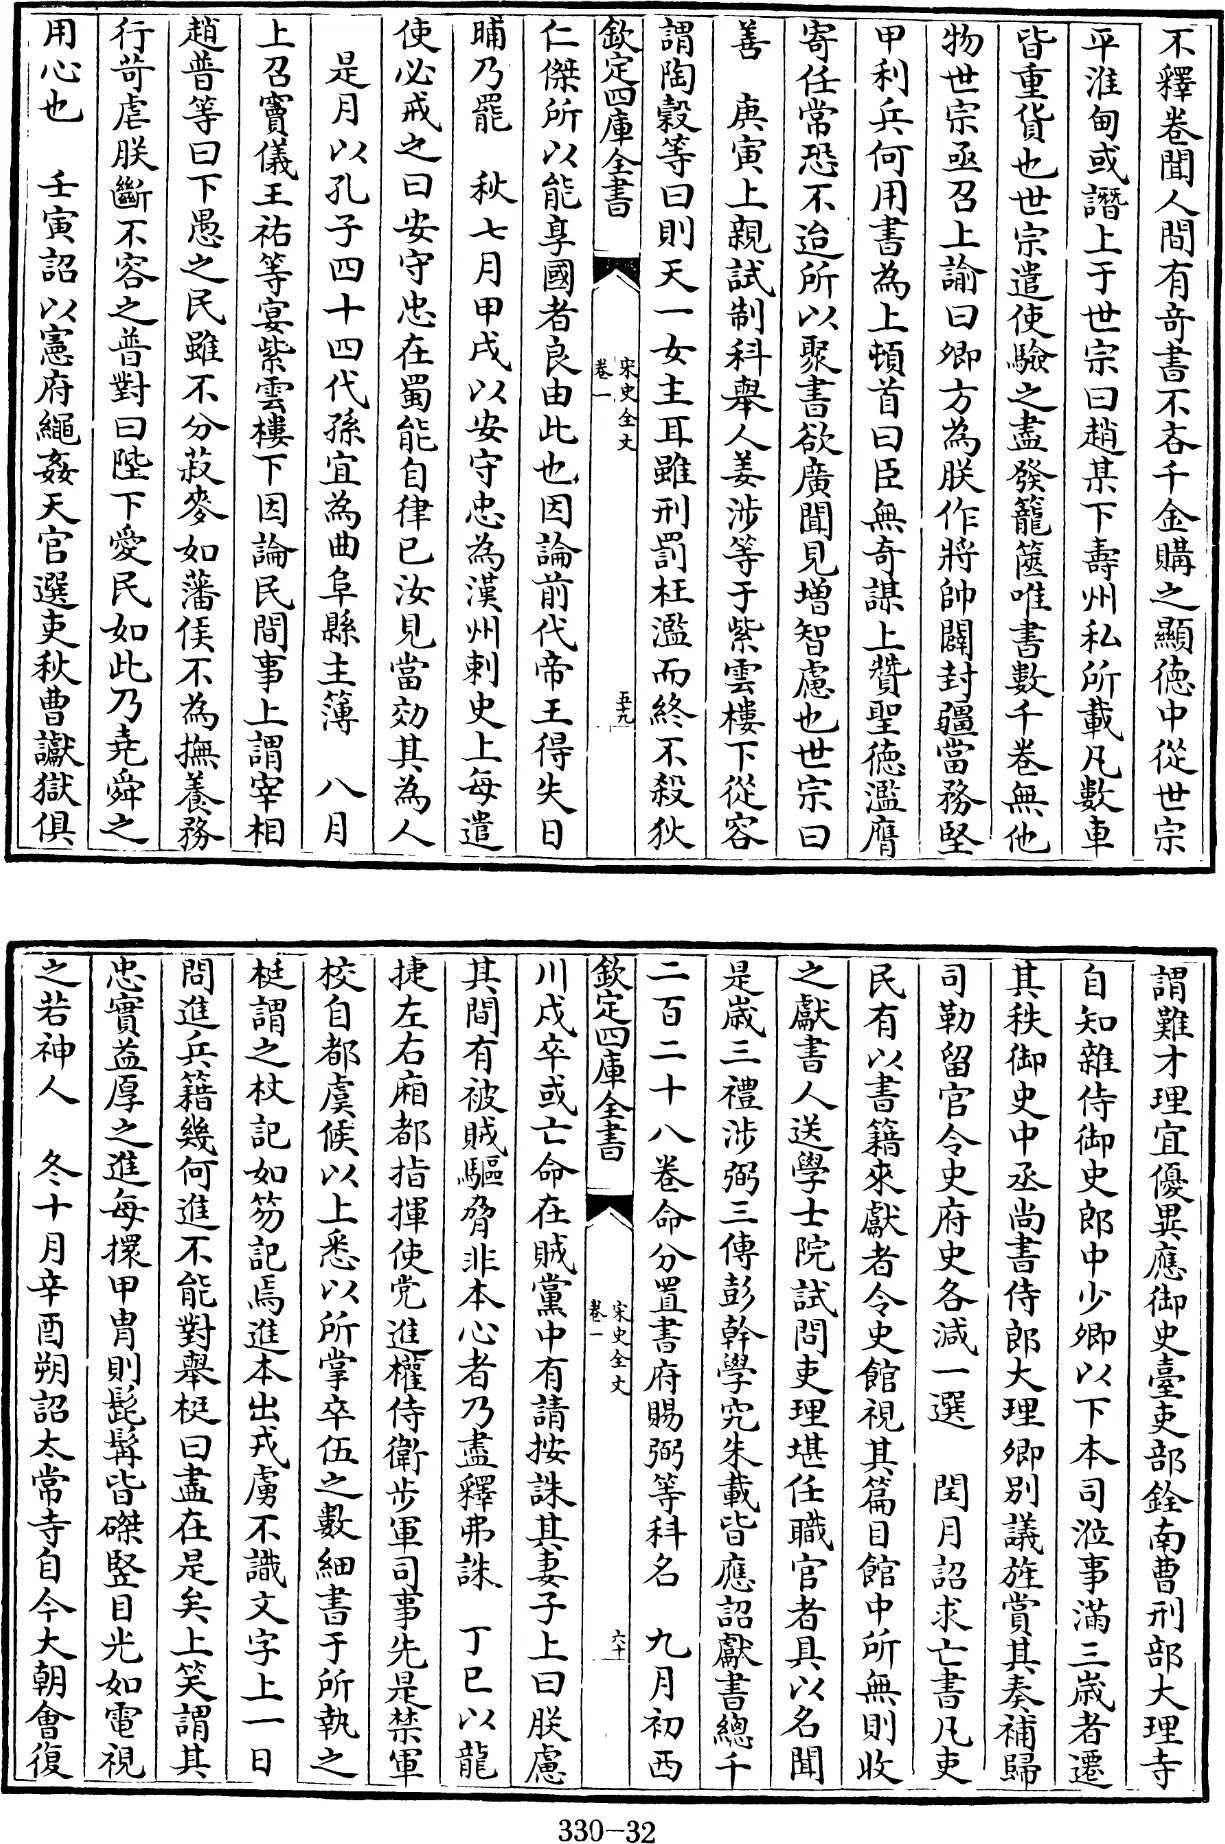 不釋卷聞人間有奇書不吝千金購之顯德中從世宗
平淮甸或譖上于世宗曰趙某下壽州私所載凡數車
皆重貨也世宗遣使驗之盡發籠篋唯書數千卷無他
物世宗亟召上諭曰卿方為朕作將帥闢封疆當務堅
甲利兵何用書為上頓首曰臣無奇謀上贊聖德濫膺
寄任常恐不迨所以聚書欲廣聞見増智慮也世宗曰
善　庚寅上親試制科舉人姜涉等于紫雲樓下從容
謂陶穀等曰則天一女主耳雖刑罰枉濫而終不殺狄
欽定四庫全書
宋史全文
卷一
五十九
仁傑所以能享國者良由此也因論前代帝王得失日
晡乃罷　秋七月甲戌以安守忠為漢州刺史上每遣
使必戒之曰安守忠在蜀能自律已汝見當効其為人
是月以孔子四十四代孫宜為曲阜縣主簿　八月
上召竇儀王祐等宴紫雲樓下因論民間事上謂宰相
趙普等曰下愚之民雖不分菽麥如藩侯不為撫養務
行苛虐朕斷不容之普對曰陛下愛民如此乃堯舜之
用心也　壬寅詔以憲府繩姦天官選吏秋曹讞獄俱
謂難才理宜優異應御史臺吏部銓南曹刑部大理寺
自知雜侍御史郎中少卿以下本司涖事滿三歲者遷
其秩御史中丞尚書侍郎大理卿別議旌賞其奏補歸
司勒留官令史府史各減一選　閏月詔求亡書凡吏
民有以書籍來獻者令史館視其篇目館中所無則收
之獻書人送學士院試問吏理堪任職官者具以名聞
是歲三禮涉弼三傳彭幹學究朱載皆應詔獻書總千
二百二十八卷命分置書府賜弼等科名　九月初西
欽定四庫全書
宋史全文
卷一
六十
川戍卒或亡命在賊黨中有請按誅其妻子上曰朕慮
其間有被賊驅脅非本心者乃盡釋弗誅　丁巳以龍
捷左右廂都指揮使党進權侍衛步軍司事先是禁軍
校自都虞候以上悉以所掌卒伍之數細書于所執之
梃謂之杖記如笏記焉進本出戎虜不識文字上一日
問進兵籍幾何進不能對舉梃曰盡在是矣上笑謂其
忠實益厚之進每擐甲胄則髭髯皆磔竪目光如電視
之若神人　冬十月辛酉朔詔太常寺自今大朝會復
330-32